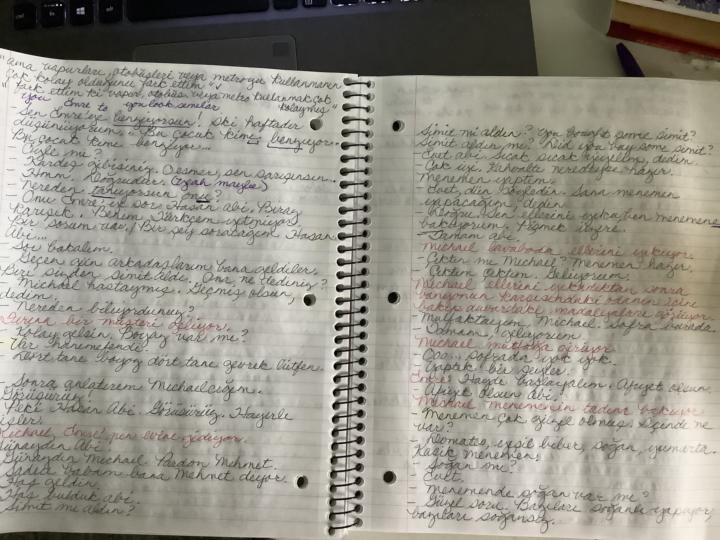 "ama vapurları, otobüsleri veya metroyu kullanmanın
çok kolay olduğunu fark ettim "
"fark ettim ki vapur, otobüs veya metro kullanmak çok
kolaymış"
you Emre to you look similar
Sen Emre'ye benziyorsun! İki haftadır
düşünüyorum. "Bu çocuk kime benziyor..
Bu çocuk kime benziyor..."
- Öyle mi?
- Kardeş gibisiniz. O esmer, sen sarışınsın...
- Hmm.
- Nereden tanıyorsun onu?
- Onu Emre'ye sor Hasan Abi. Biraz
karışık. Benim Türkçem yetmiyor.
Bir sorum var / Bir şey soracağım Hasan
Abi...
- Sor bakalım.
- Geçen gün arkadaşlarım bana geldiler.
Biri sizden simit aldı. Ona ne dediniz?
- Michael hastaymış. Geçmiş olsun,
dedim.
- Nereden biliyordunuz?
Fırına bir müşteri geliyor.
- Kolay gelsin. Boyoz var mı?
- Var hanımefendi.
- Dört tane boyoz dört tane gevrek lütfen.
- Sonra anlatırım Michaelciğim.
Görüşürüz!
- Peki Hasan Abi. Görüşürüz. Hayırlı
işler.
Michael, Emre'nin evine gidiyor.
Günaydın Abi.
Günaydın Michael. Pardon Mehmet.
Sadece babam bana Mehmet diyor.
Hoş geldin.
Hoş bulduk abi.
Simit mi aldın?
Simit mi aldın? You bought some simit?
Simit aldın mı? Did you buy some simit?
- Evet abi. Sıcak sıcak yiyelim, dedim.
- Çok iyi. Kahvaltı neredeyse hazır.
Menemen yaptım.
- Evet, dün söyledin. Sana menemen
yapacağım, dedin.
- Doğru. Sen ellerini yıka, ben menemene
bakıyorum. Pişmek üzere.
- Tamam abi.
Michael lavaboda ellerini yıkıyor.
- Çıktın mı Michael? Menemen hazır.
- Çıktım çıktım. Geliyorum.
Michael ellerini yıkadıktan sonra
banyonun karşısındaki odanın içine
bakıp duvardaki madalyaları görüyor.
- Mutfaktayım, Michael. Sofra burada.
- Tamam, geliyorum.
Michael mutfağa giriyor.
- Ooo... sofrada yok yok.
- Yaptık bir şeyler.
Emre: Haydi başlayalım. Afiyet olsun.
- Afiyet olsun abi.
Michael menemenin tadına bakıyor
- Menemen çok güzel olmuş. İçinde ne
var?
- Domates, yeşil biber, soğan, yumurta.
Klasik menemen.
- Soğan mı?
- Evet.
- Menemende soğan var mı?
- Güzel soru. Bazıları soğanlı yapıyor,
bazıları soğansız.